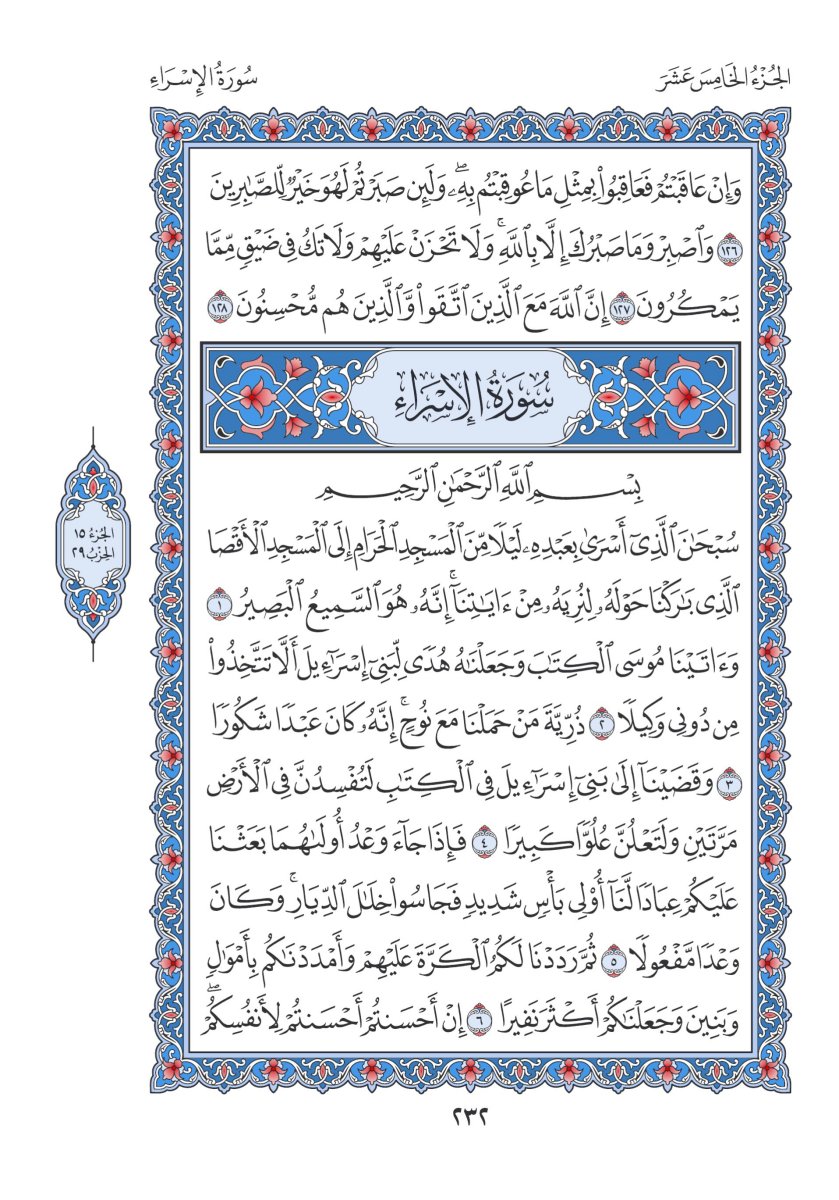 الجُزْءُ الخَامِسَ عَشَرَ
سُورَةُ الإِسْرَاءِ
وَإِنْ عَاقَبْتُمْ فَعَاقِبُوا۟ بِمِثْلِ مَا عُوقِبْتُم بِهِۦۖ وَلَئِن صَبَرْتُمْ لَهُوَ خَيْرٌ لِّلصَّـٰبِرِينَ
١٢٦ وَٱصْبِرْ وَمَا صَبْرُكَ إِلَّا بِٱللَّهِۚ وَلَا تَحْزَنْ عَلَيْهِمْ وَلَا تَكُ فِى ضَيْقٍ مِّمَّا
يَمْكُرُونَ ١٢٧ إِنَّ ٱللَّهَ مَعَ ٱلَّذِينَ ٱتَّقَوا۟ وَّٱلَّذِينَ هُم مُّحْسِنُونَ ١٢٨
سُورَةُ الإِسْرَاءِ
بِسْمِ ٱللَّهِ ٱلرَّحْمَـٰنِ ٱلرَّحِيمِ
سُبْحَـٰنَ ٱلَّذِىٓ أَسْرَىٰ بِعَبْدِهِۦ لَيْلًا مِّنَ ٱلْمَسْجِدِ ٱلْحَرَامِ إِلَى ٱلْمَسْجِدِ ٱلْأَقْصَا
ٱلَّذِى بَـٰرَكْنَا حَوْلَهُۥ لِنُرِيَهُۥ مِنْ ءَايَـٰتِنَآۚ إِنَّهُۥ هُوَ ٱلسَّمِيعُ ٱلْبَصِيرُ ١
وَءَاتَيْنَا مُوسَى ٱلْكِتَـٰبَ وَجَعَلْنَـٰهُ هُدًى لِّبَنِىٓ إِسْرَٰٓءِيلَ أَلَّا تَتَّخِذُوا۟
مِن دُونِى وَكِيلًا ٢ ذُرِّيَّةَ مَنْ حَمَلْنَا مَعَ نُوحٍۚ إِنَّهُۥ كَانَ عَبْدًا شَكُورًا
٣ وَقَضَيْنَآ إِلَىٰ بَنِىٓ إِسْرَٰٓءِيلَ فِى ٱلْكِتَـٰبِ لَتُفْسِدُنَّ فِى ٱلْأَرْضِ
مَرَّتَيْنِ وَلَتَعْلُنَّ عُلُوًّا كَبِيرًا ٤ فَإِذَا جَآءَ وَعْدُ أُولَىٰهُمَا بَعَثْنَا
عَلَيْكُمْ عِبَادًا لَّنَآ أُو۟لِى بَأْسٍ شَدِيدٍ فَجَاسُوا۟ خِلَـٰلَ ٱلدِّيَارِۚ وَكَانَ
وَعْدًا مَّفْعُولًا ٥ ثُمَّ رَدَدْنَا لَكُمُ ٱلْكَرَّةَ عَلَيْهِمْ وَأَمْدَدْنَـٰكُم بِأَمْوَٰلٍ
وَبَنِينَ وَجَعَلْنَـٰكُمْ أَكْثَرَ نَفِيرًا ٦ إِنْ أَحْسَنتُمْ أَحْسَنتُمْ لِأَنفُسِكُمْۖ
الجُزْءُ ١٥
الحِزْبُ ٢٩
٢٣٢